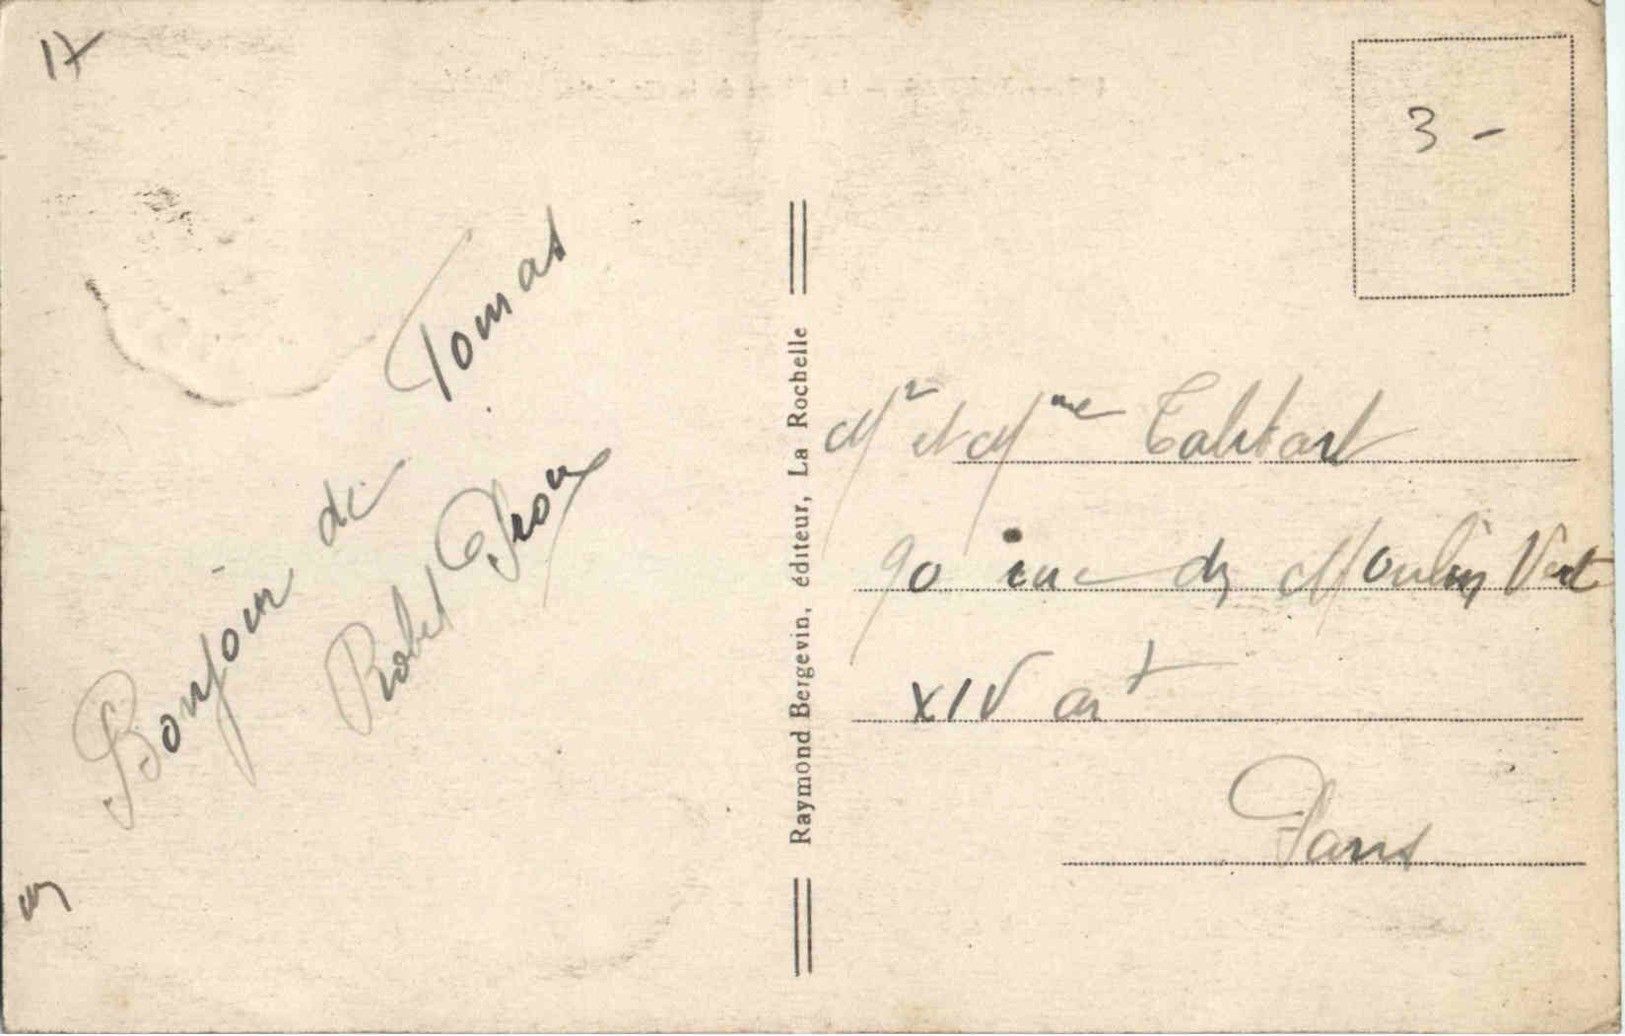 17
Bonjour de Tonnay
Robert
Raymond Bergevin, éditeur, La Rochelle
3 -
Mr et Mme
90 rue du Moulin Vert
XIV art
Paris